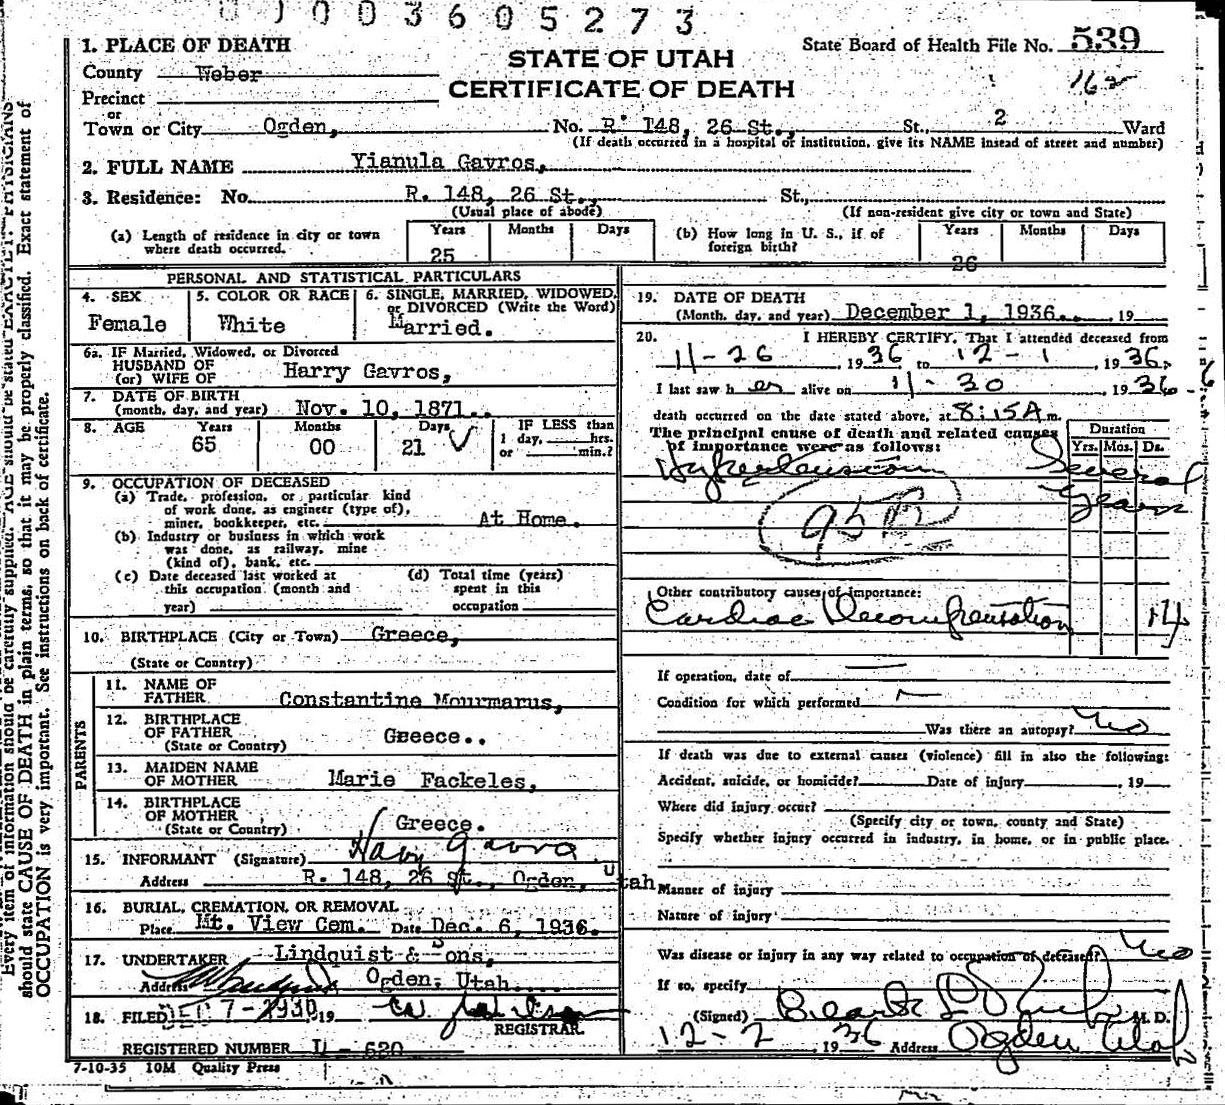 003605273
1. PLACE OF DEATH
STATE OF UTAH
CERTIFICATE OF DEATH
State Board of Health File No. 539
162
County Weber
Precinct
or
Town or City Ogden, No. R. 148, 26 St., St., 2 Ward
(If death occurred in a hospital or institution, give its NAME insead of street and number)
2. FULL NAME Yianula Gavros,
3. Residence: No. R. 148, 26 St., St.,
(Usual place of abode) (If non-resident give city or town and State)
(a) Length of residence in city or town where death occurred. Years 25 Months Days
(b) How long in U. S., if of foreign birth? Years 26 Months Days
PERSONAL AND STATISTICAL PARTICULARS
4. SEX Female
5. COLOR OR RACE White
6. SINGLE, MARRIED, WIDOWED, or DIVORCED (Write the Word) Married.
6a. IF Married, Widowed, or Divorced
HUSBAND OF
(or) WIFE OF Harry Gavros,
7. DATE OF BIRTH
(month, day, and year) Nov. 10, 1871..
8. AGE Years 65 Months 00 Days 21 IF LESS than 1 day, hrs. or min.?
9. OCCUPATION OF DECEASED
(a) Trade, profession, or particular kind
of work done, as engineer (type of),
miner, bookkeeper, etc. At Home.
(b) Industry or business in which work
was done, as railway, mine
(kind of), bank, etc.
(c) Date deceased last worked at
this occupation (month and
year)
(d) Total time (years)
spent in this
occupation
10. BIRTHPLACE (City or Town) Greece,
(State or Country)
PARENTS
11. NAME OF
FATHER Constantine Mourmarus,
12. BIRTHPLACE
OF FATHER Greece..
(State or Country)
13. MAIDEN NAME
OF MOTHER Marie Fackeles,
14. BIRTHPLACE
OF MOTHER
(State or Country) Greece.
15. INFORMANT (Signature) Harry Gavros
Address R. 148, 26 St., Ogden, Utah
16. BURIAL, CREMATION, OR REMOVAL
Place Mt. View Cem. Date Dec. 6, 1936.
17. UNDERTAKER Lindquist & Sons,
Address Ogden, Utah....
18. FILED DEC 7-1936 19
REGISTRAR.
REGISTERED NUMBER
7-10-35 10M Quality Press
19. DATE OF DEATH
(Month, day, and year) December 1, 1936. , 19
20. I HEREBY CERTIFY, That I attended deceased from
11-26, 1936 to 12-1, 1936,
I last saw her alive on 11-30, 1936
death occurred on the date stated above, at 8:15A m.
The principal cause of death and related causes
of importance were as follows:
Duration
Yrs. Mos. Ds.
Hypertension Several
Years
95B
Other contributory causes of importance:
Cardiac Decompensation 14
If operation, date of
Condition for which performed
Was there an autopsy? No
If death was due to external causes (violence) fill in also the following:
Accident, suicide, or homicide? Date of injury , 19
Where did injury occur?
(Specify city or town, county and State)
Specify whether injury occurred in industry, in home, or in public place.
Manner of injury
Nature of injury
Was disease or injury in any way related to occupation of deceased? No
If so, specify
(Signed) M. D.
12-2 1936 Address Ogden Utah
Every item of information should be carefully supplied. AGE should be stated EXACTLY. PHYSICIANS
should state CAUSE OF DEATH in plain terms, so that it may be properly classified. Exact statement of
OCCUPATION is very important. See instructions on back of certificate.